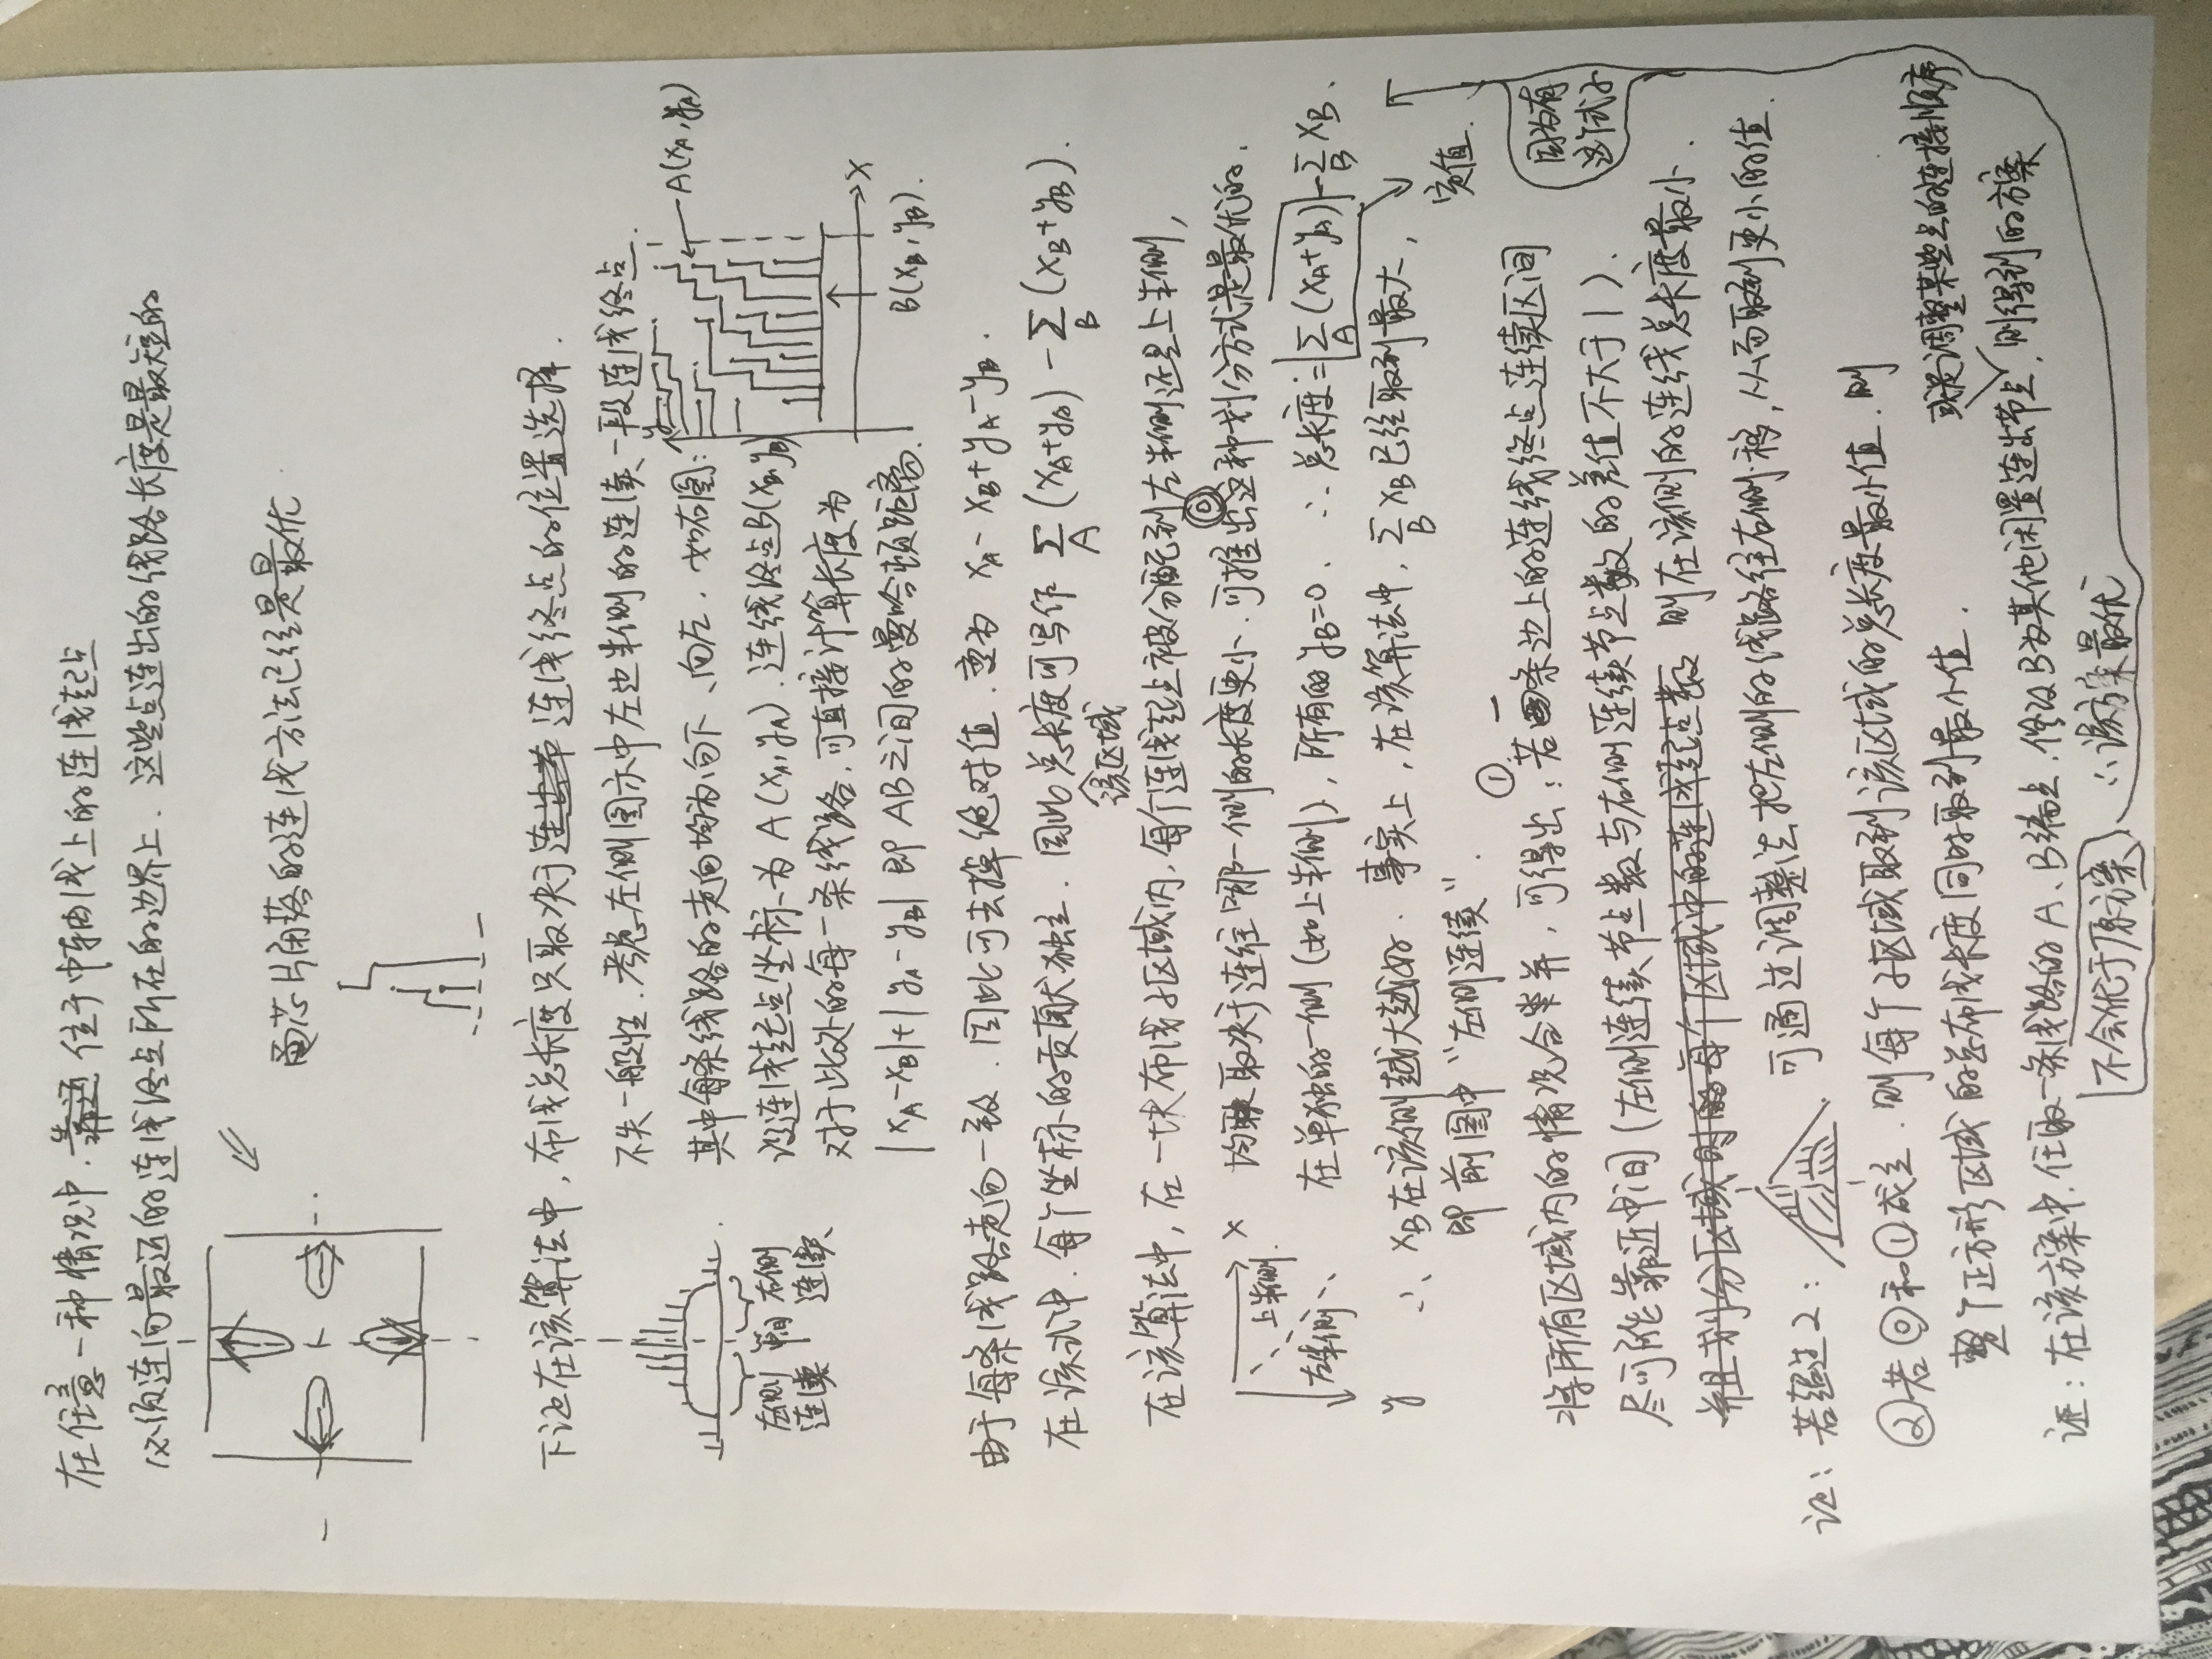 在任意一种情况中. 靠近 位于中轴线上的连线起点
必须连向最近的连线终点所在的边界上. 这些点连出的线路长度是最短的
芯片角落的连线方法已经是最优
下证在该算法中, 布线总长度只取决于 连线终点的位置选择.
不失一般性. 考虑左侧图示中左边半侧的连续一段连线终点.
其中每条线路的走向均为向下、向左. 如右图:
y
A(xA, yA)
左侧连续
中间
右侧连续
设连线起点坐标为 A(xA, yA). 连线终点B(xB, yB)
对于此处的每一条线路, 可直接计算长度为
x
|xA-xB|+|yA-yB| 即 AB之间的曼哈顿距离.
B(xB, yB).
由于每条线路走向一致. 因此可去掉绝对值. 变为 xA-xB+yA-yB.
在该式中. 每个坐标的贡献独立. 因此总长度可写作 Σ_A (xA+yA) - Σ_B (xB+yB).
该区域
在该算法中, 在一块布线子区域内, 每个连线起点被分配到左半侧还是上半侧,
x
上半侧.
左半侧
y
均取决于连往哪一侧的长度更小. 可推出⓪这种划分方式是最优的.
在单独的一侧(如上半侧), 所有的 yB=0. ∴ 总长度=Σ_A (xA+yA)-Σ_B xB.
∴ xB在该侧越大越好. 事实上, 在该算法中, Σ_B xB已经取到最大,
定值.
即前图中“左侧连续”.
将所有区域内的情况合并, 可得出: ①若一条边上的连线终点连续区间
因为有
这个式子
尽可能靠近中间(左侧连续节点数与右侧连续节点数的差值不大于1).
并且划分区域时的每个区域中的连线起点数 则在该侧的连线总长度最小.
证: 若超过2: 可通过调整法把左侧的线路往右侧移, 从而取到更小的值.
②若⓪和①成立. 则每个子区域取到该区域的总长度最小值. 则
整个正方形区域的总布线长度同时取到最小值.
或是调整某些点的连接顺序
证: 在该方案中, 任取一条线路的A、B端点, 修改B为其他闲置连出节点, 则得到的方案
不会优于原方案, ∴该方案最优